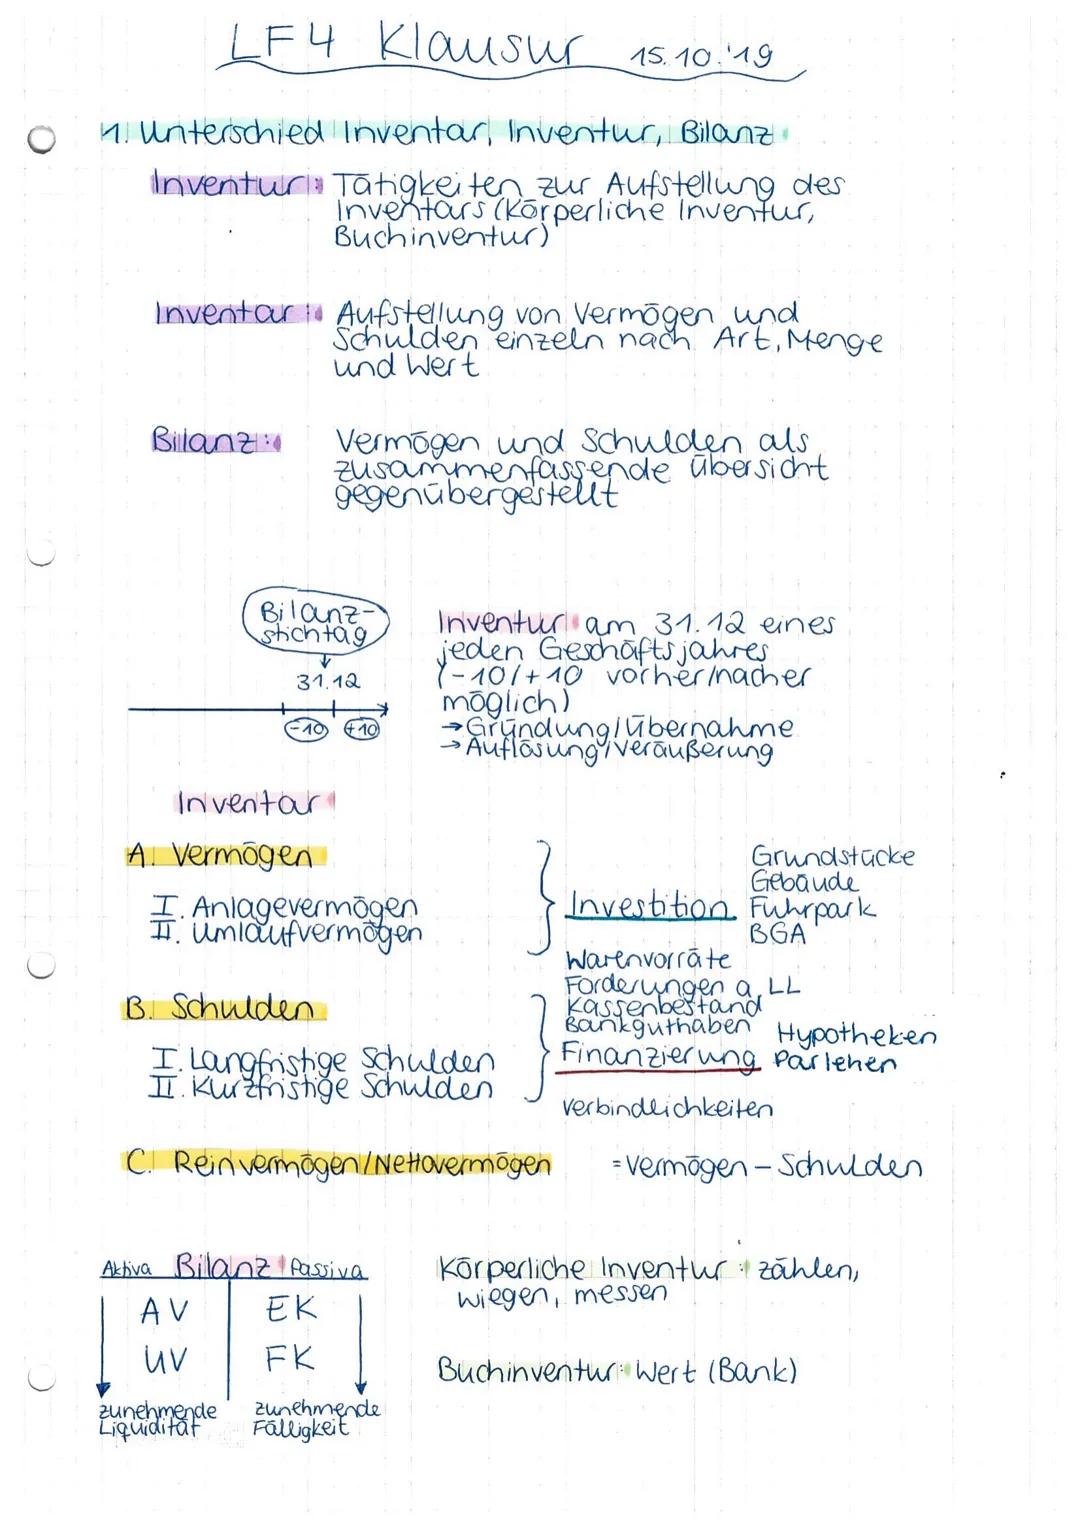 LF4 Klausur 15.10.'19
1. Unterschied Inventar, Inventur, Bilanz
Inventur: Tätigkeiten zur Aufstellung des
Inventars (Körperliche Inventur,
Buchinventur)
Inventar: Aufstellung von Vermögen und
Schulden einzeln nach Art, Menge
und Wert
Bilanz: Vermögen und Schulden als
zusammenfassende Übersicht
gegenübergestellt
Bilanz-
stichtag
31.12
-10 +10
Inventur am 31.12 eines
jeden Geschäftsjahres
(-10/+10 vorher/nacher
möglich)
→Gründung/Übernahme
→Auflösung/Veräußerung
Inventar
A. Vermögen
I. Anlagevermögen
II. Umlaufvermögen
Investition
Grundstücke
Gebäude
Fuhrpark
BGA
Warenvorräte
Forderungen a. LL
Kassenbestand
Bankguthaben
B. Schulden
I. Langfristige Schulden
II. Kurzfristige Schulden
Finanzierung
Hypotheken
Darlehen
Verbindlichkeiten
C. Reinvermögen/Nettovermögen =Vermögen – Schulden
Aktiva Bilanz Passiva
AV EK
UV FK
zunehmende
Liquidität
zunehmende
Fälligkeit
Körperliche Inventur: zählen,
wiegen, messen
Buchinventur: Wert (Bank)